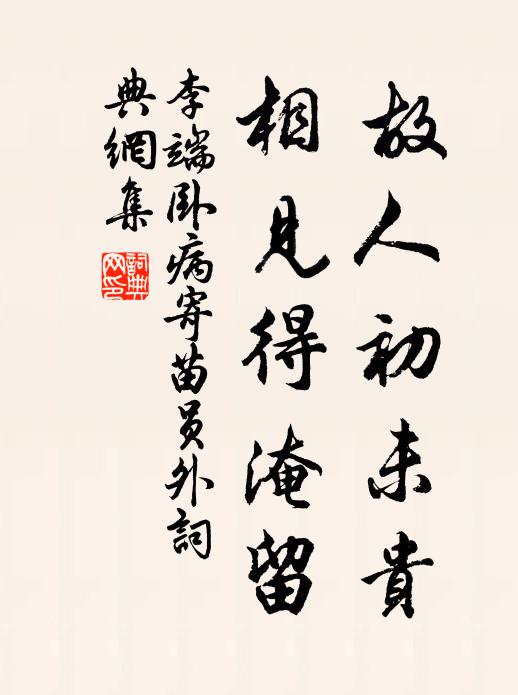 故人初未貴
相見得淹留
李端卧病寄苗員外詞
典網集
詞典網印